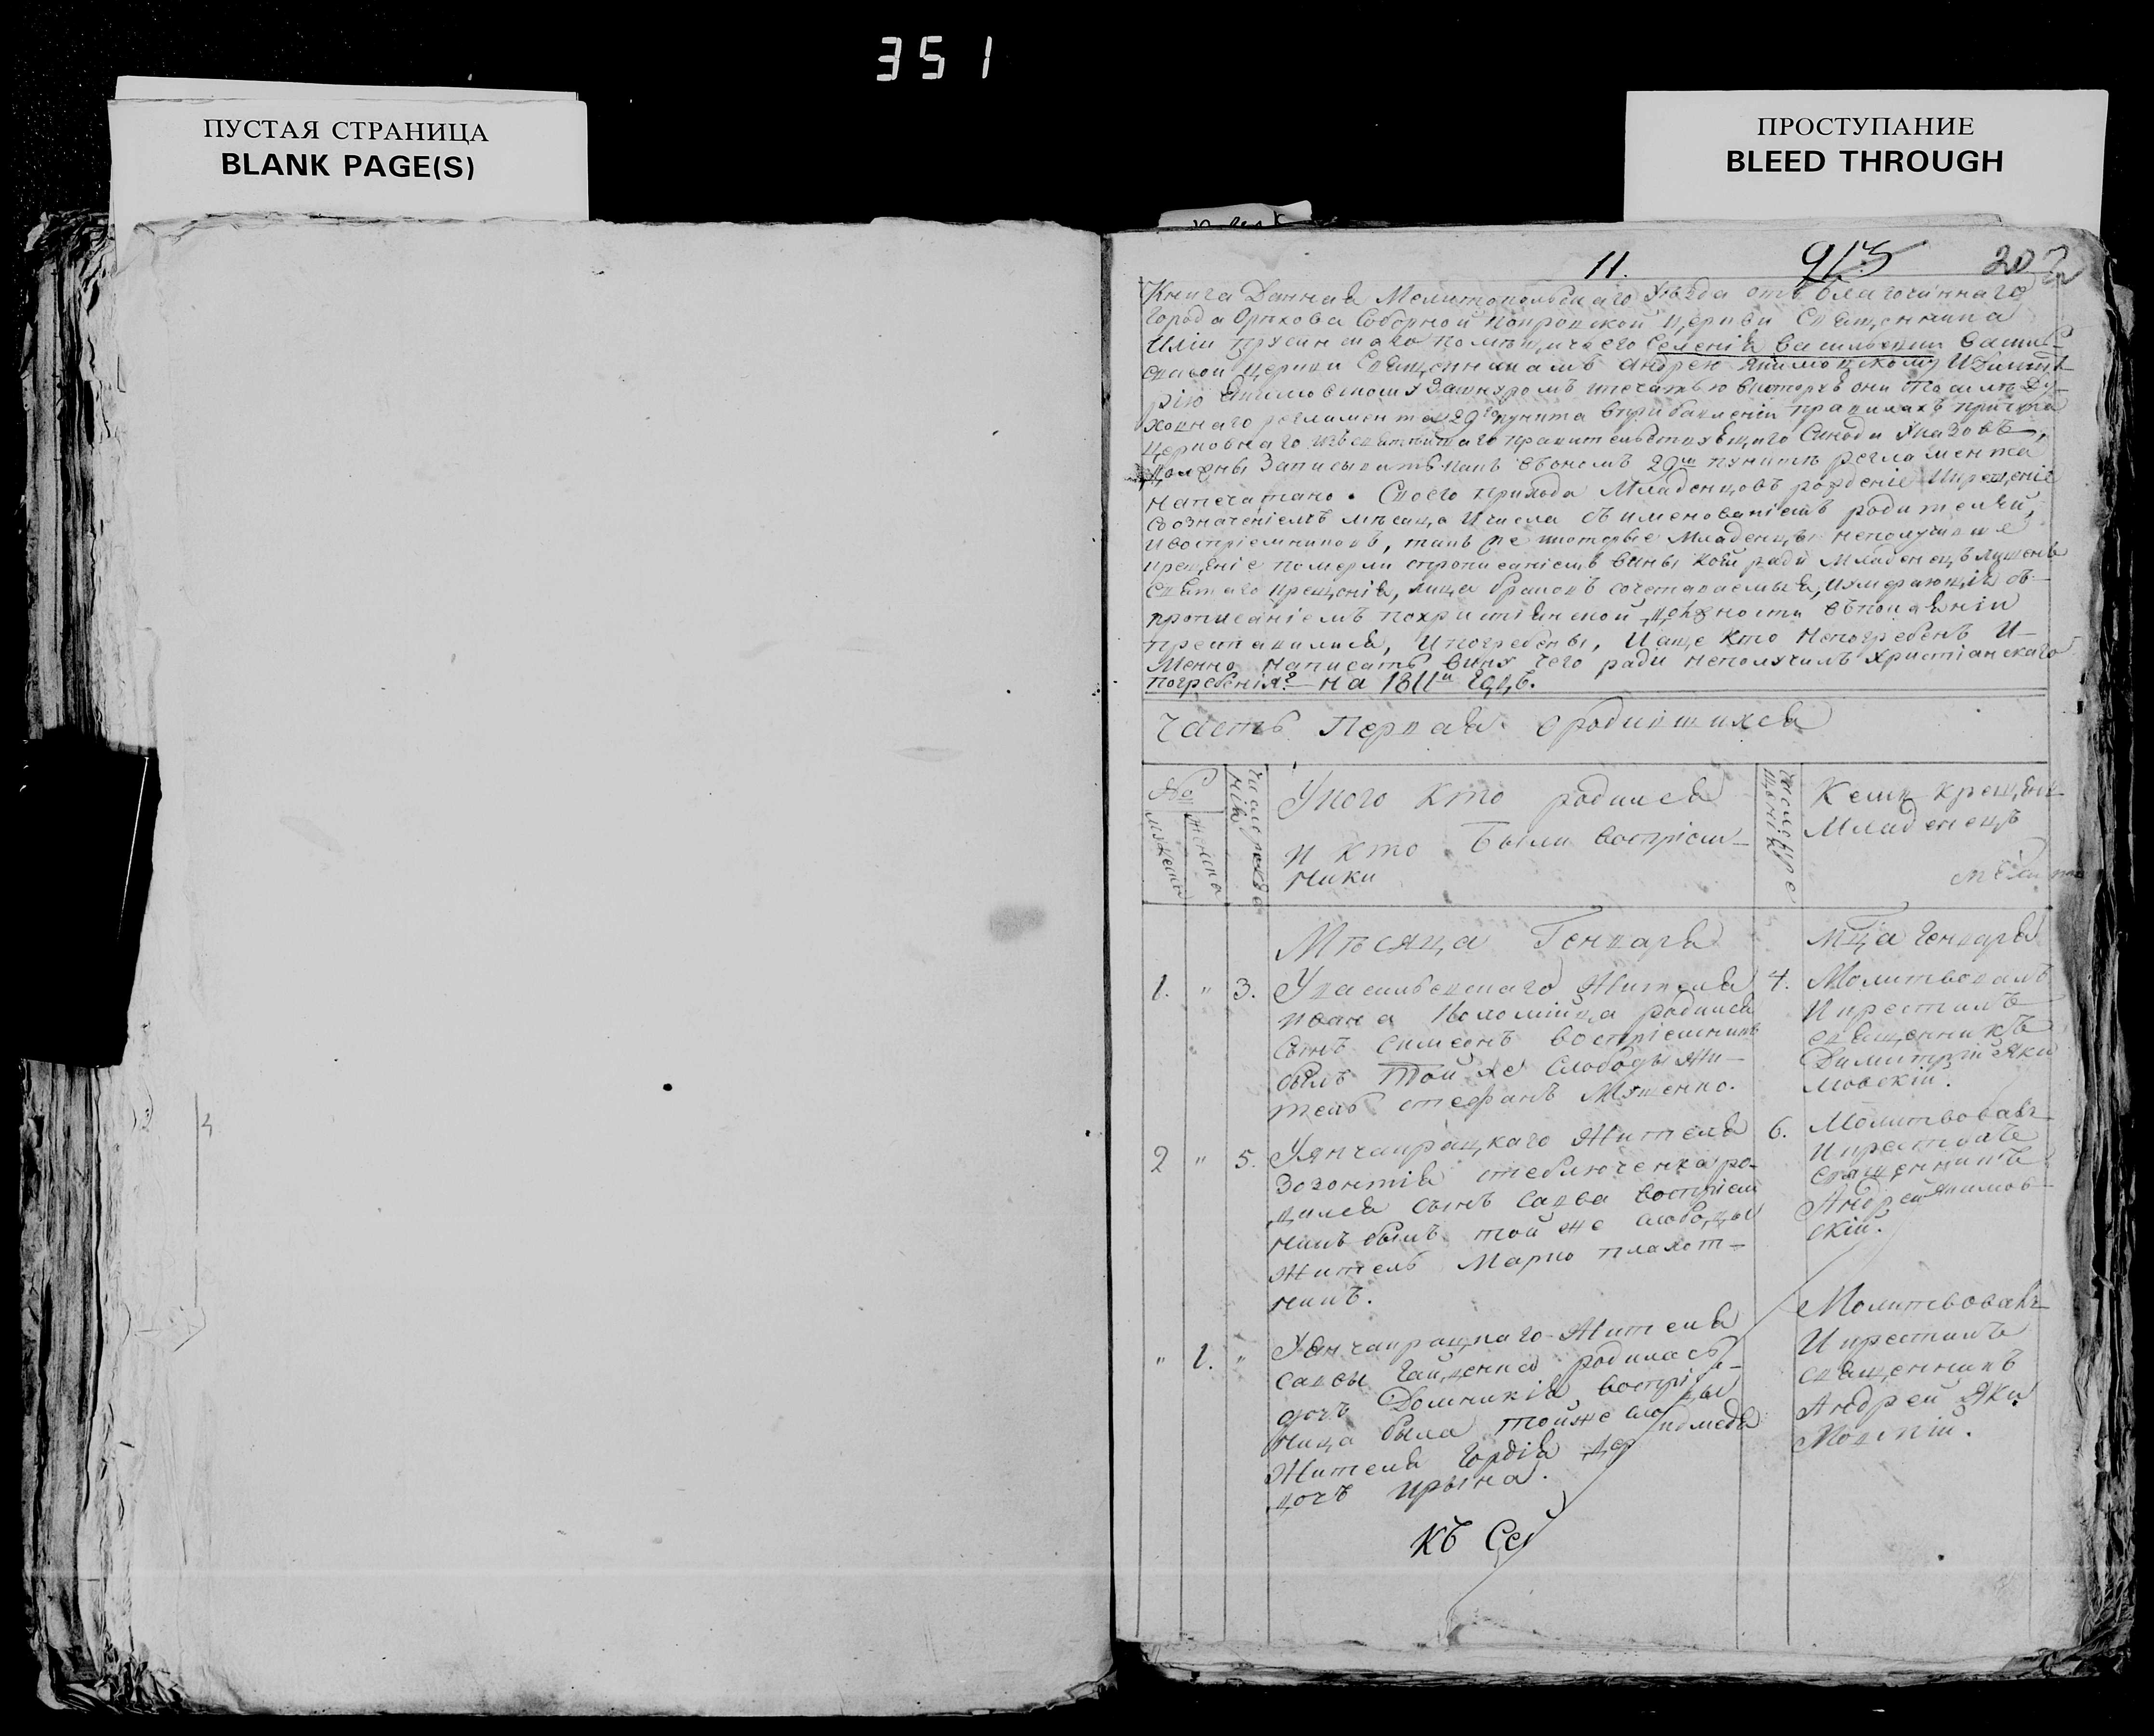 351
ПУСТАЯ СТРАНИЦА
BLANK PAGE(S)
ПРОСТУПАНИЕ
BLEED THROUGH
11.
915
202
Книга Данная Мелитопольскаго Уѣзда отъ благочиннаго
города Орѣхова Соборной покровской церкви Священника
Иліи помѣщичьего Селенія васильевки васил
евской церкви Священникамъ Андрею Якимовскому И Димит
рію Якимовскому Зашнуромъ ипечатью вкоторую они Посилѣ Ду
ховнаго регламента 29го пункта вприбавленіи правилахъ причта
Церковнаго правительствующаго Синода Указовъ,
должны Записывать какъ воономъ 29мъ пунктѣ регламента
напечатано. Своего прихода Младенцовъ рожденіе Икрещеніе
Созначеніемъ мѣсяца Ичисла съименованіемъ родителей,
Ивоспріемниковъ, такъ же икоторые Младенцы неполучивше
крещеніе померли спрописаніемъ вины коей ради Младенецъ лишенъ
Святаго крещенія, лица бракомъ сочетаваемыя, Иумерающія съ
прописаніемъ похристіанской должности въпокаяніи
преставились, Ипогребены, Иаще кто Непогребенъ И-
менно написать вину чего ради неполучилъ христіанскаго
погребенія? на 1811й годъ.
Часть Первая ородившихся
№
мужеска
женска
число рожде
нія
Укого Кто родился
и кто Были воспріем-
ники
число кре
щенія
Кемъ крещенъ
Младенецъ
Мѣсяца Генваря
Мца Генваря
1. " 3. Увасильевскаго Жителя
Ивана Коломійца родился
сынъ Симеонъ воспріемникъ
былъ Той же Слободы Жи-
тель стефанъ Мошенко.
4. Молитвовалъ
Икрестилъ
священникъ
Димитрій Яки
мовскій.
2 " 5. Уянчакрацкаго Жителя
Зозонтія стеблюченка ро-
дился сынъ Савва воспріем
никъ былъ той же слободы
Житель Марко плахот-
никъ.
6. Молитвовалъ
Икрестилъ
Священникъ
Андрей Якимов
скій.
" 1. " Уянчакрацкаго Жителя
саввы Гайденка родилась
дочъ Домникія воспріем
ница была тойже слободы
Жителя Гордія
дочъ Ирына.
Молитвовалъ
Икрестилъ
священникъ
Андрей Яки
мовскій.
Къ Сей